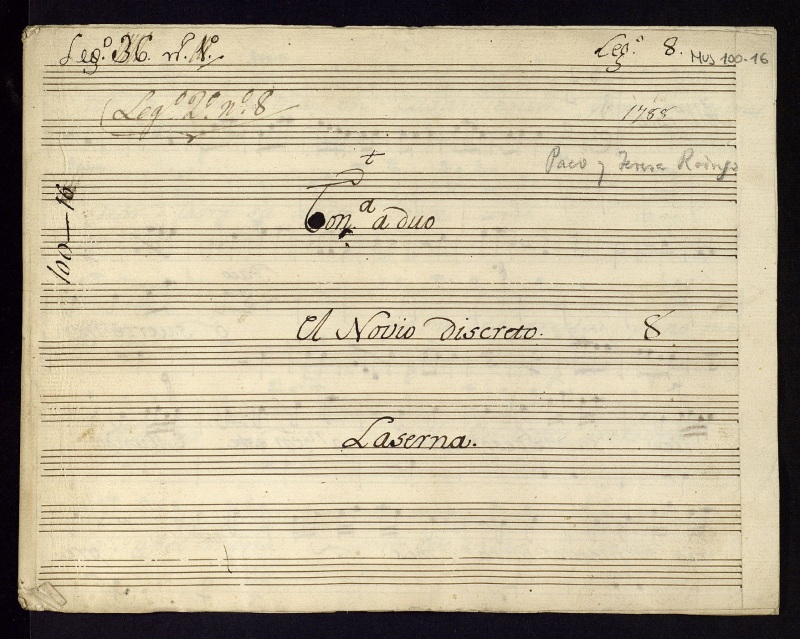 Leg.º 36. n.º Nº
Leg.º 8.
MUS 100-16
Legº 2º nº 8
1788
Paco y Teresa Rodrigo
t
Ton.ª a duo
100-16
El Novio Discreto.
8
Laserna.